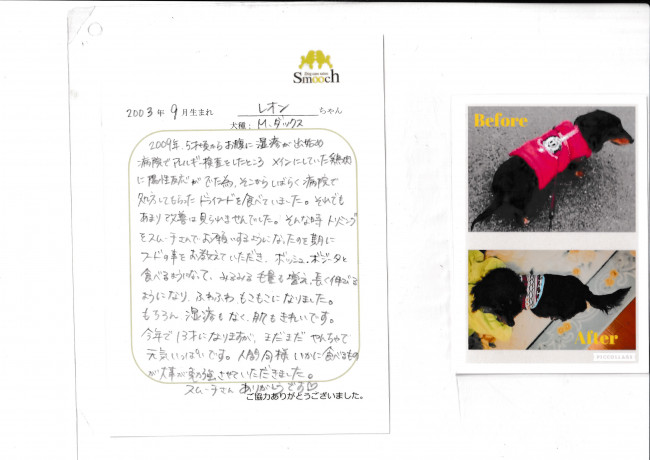 Dog care salon
Smooch
2003年 9月生まれ
レオン ちゃん
犬種: M.ダックス
2009年、5才頃からお腹に湿疹が出始め
病院でアレルギー検査をしたところ メインにしていた鶏肉
に陽性反応がでた為、そこからしばらく病院で
処方してもらったドライフードを食べていました。それでも
あまり改善は見られませんでした。そんな時 トリミング
をスムーチさんでお願いするようになったのを期に
フードの事をお教えていただき、ボッシュ、ボジータと
食べるようになって、みるみる毛量も増え、長く伸びる
ようになり、ふわふわ もこもこになりました。
もちろん 湿疹もなく、肌もきれいです。
今年で13才になりますが、まだまだ やんちゃで
元気いっぱいです。人間同様 いかに食べるもの
が大事か 勉強させていただきました。
スムーチさん ありがとうです♡
ご協力ありがとうございました。
Before
After
PICCOLLAGE